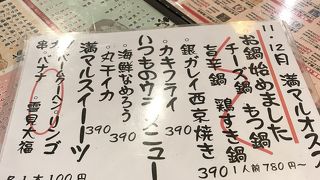 11・12月 満マルオススメ
お鍋始めました
チーズ鍋 もつ鍋
旨辛鍋 鶏すき鍋
1人前780円〜
銀ガレイ西京焼き 390
カキフライ
いつものウラメニュー
海鮮なめろう 390
丸干イカ 390
満マルスイーツ
バームクーヘン リンゴ
串バナナ 雪見大福
各1本100円